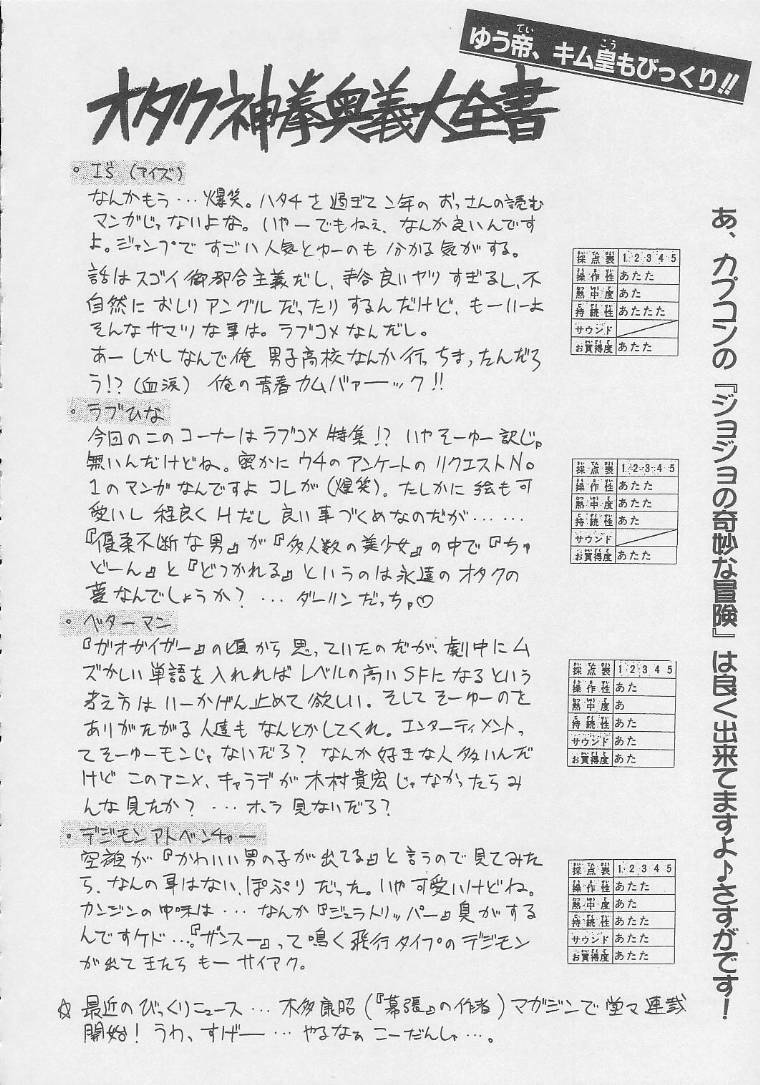 ゆう帝、キム皇もびっくり!!
オタク神拳奥義大全書
・I's (アイズ)
なんかもう…爆笑。ハタチを過ぎて二年のおっさんの読む
マンガじゃないよな。いやーでもねぇ、なんか良いんです
よ。ジャンプですごい人気とゆーのも分かる気がする。
話はスゴイ御都合主義だし、手谷良いヤリすぎるし、不
自然におしりアングルだったりするんだけど、もーいーよ
そんなサマツな事は。ラブコメなんだし。
あーしかしなんで俺 男子高校なんか行っちまったんだろ
う!? (血涙) 俺の青春カムバァーーック!!
採点表 1 2 3 4 5
操作性 あたた
熱中度 あた
持続性 あたたた
サウンド
お買得度 あたた
・ラブひな
今回のこのコーナーはラブコメ特集!? いやそーゆー訳じゃ
無いんだけどね。密かにウチのアンケートのリクエストNo
1のマンガなんですよコレが(爆笑)。たしかに絵も可
愛いし 程良くHだし良い事づくめなのだが……
『優柔不断な男』が『多人数の美少女』の中で『ちゅ
どーん』と『どつかれる』というのは永遠のオタクの
夢なんでしょうか? …ダーリンだっちゃ♡
採点表 1 2 3 4 5
操作性 あたた
熱中度 あたた
持続性 あた
サウンド
お買得度 あたた
・ベターマン
『ガオガイガー』の頃から思っていたのだが、劇中にム
ズかしい単語を入れればレベルの高いSFになるという
考え方はいーかげん止めて欲しい。そしてそーゆーのを
ありがたがる人達もなんとかしてくれ。エンターティメントっ
てそーゆーモンじゃないだろ? なんか好きな人多いんだ
けど このアニメ、キャラデが木村貴宏じゃなかったらみ
んな見たか? …ホラ見ないだろ?
採点表 1 2 3 4 5
操作性 あた
熱中度 あ
持続性 あた
サウンド あた
お買得度 あた
・デジモンアドベンチャー
空龍が『かわいい男の子が出てる』と言うので見てみた
ら、なんの事はない、ぽぷりだった。いや可愛いけどね。
カンジンの中味は… なんか『ジュラトリッパー』臭がする
んですケド…。『ザンスー』って鳴く飛行タイプのデジモン
が出てきたらもーサイアク。
採点表 1 2 3 4 5
操作性 あたた
熱中度 あた
持続性 あた
サウンド あたた
お買得度 あたた
☆ 最近のびっくりニュース…木多康昭(『幕張』の作者)マガジンで堂々連載
開始! うわ、すげー…やるなぁこーだんしゃ…。
あ、カプコンの『ジョジョの奇妙な冒険』は良く出来てますよ♪さすがです!